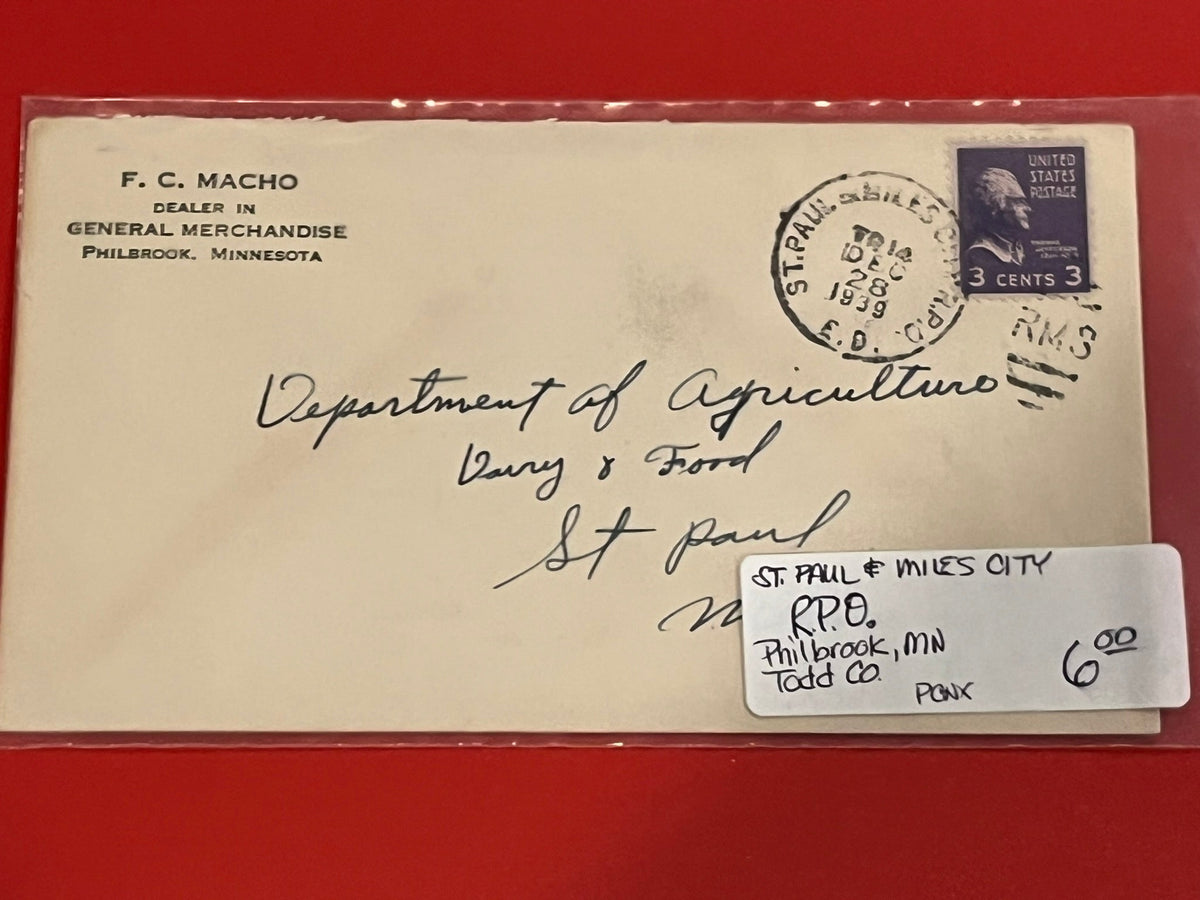 F. C. MACHO
DEALER IN
GENERAL MERCHANDISE
PHILBROOK, MINNESOTA
ST. PAUL & MILES CITY R.P.O.
TR 14
DEC
28
1939
E. D.
UNITED
STATES
POSTAGE
3 CENTS 3
RMS
Department of Agriculture
Dairy & Food
St Paul
ST. PAUL & MILES CITY
R.P.O.
Philbrook, MN
Todd CO.
6 00